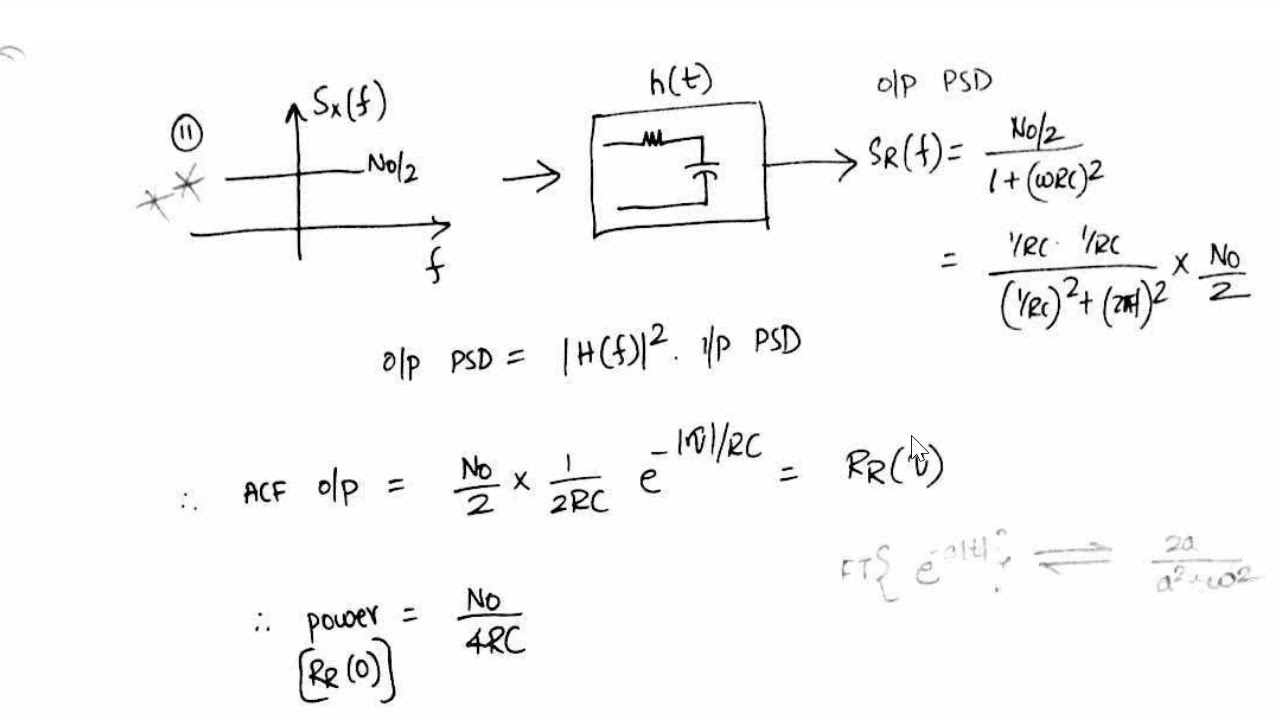 ⑪
Sx(f)
No/2
f
h(t)
o/p PSD
SR(f) = No/2 / 1+(ωRC)²
= 1/RC · 1/RC / (1/RC)² + (2πf)² × No/2
o/p PSD = |H(f)|² . i/p PSD
∴ ACF o/p = No/2 × 1/2RC e^-|τ|/RC = RR(τ)
FT{ e^-a|t| } ⇌ 2a / a²+ω²
∴ power = No/4RC
[RR(0)]